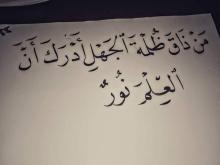 "مَنْ ذَاقَ ظُلْمَةَ الجَهْلِ أَدْرَكَ أَنَّ
العِلْمَ نُورٌ"